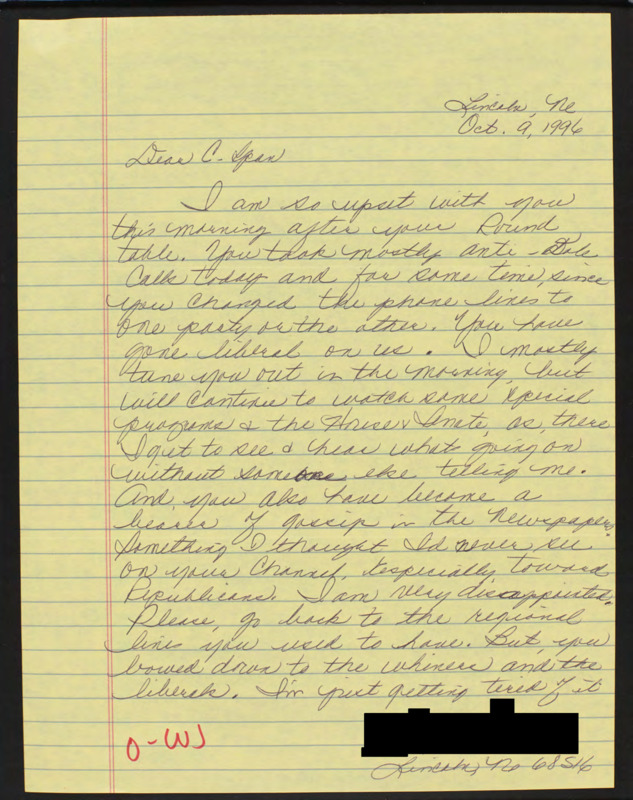 Lincoln, Ne
Oct. 9, 1996
Dear C-Span
I am so upset with you
this morning after your Round
table. You took mostly anti-Dole
Calls today and for some time, since
you changed the phone lines to
one party or the other. You have
gone liberal on us. I mostly
tune you out in the morning, but
will continue to watch some special
programs & the House & Senate, as, there
I get to see & hear whats going on
without someone else telling me.
And you also have become a
bearer of gossip in the Newspapers.
Something I thought I'd never see
on your Channel. Especially toward
Republicans. I am very disappointed.
Please, go back to the regional
lines you used to have. But, you
bowed down to the whiners and the
liberals. I'm just getting tired of it
O-WJ
Lincoln, Ne 68516